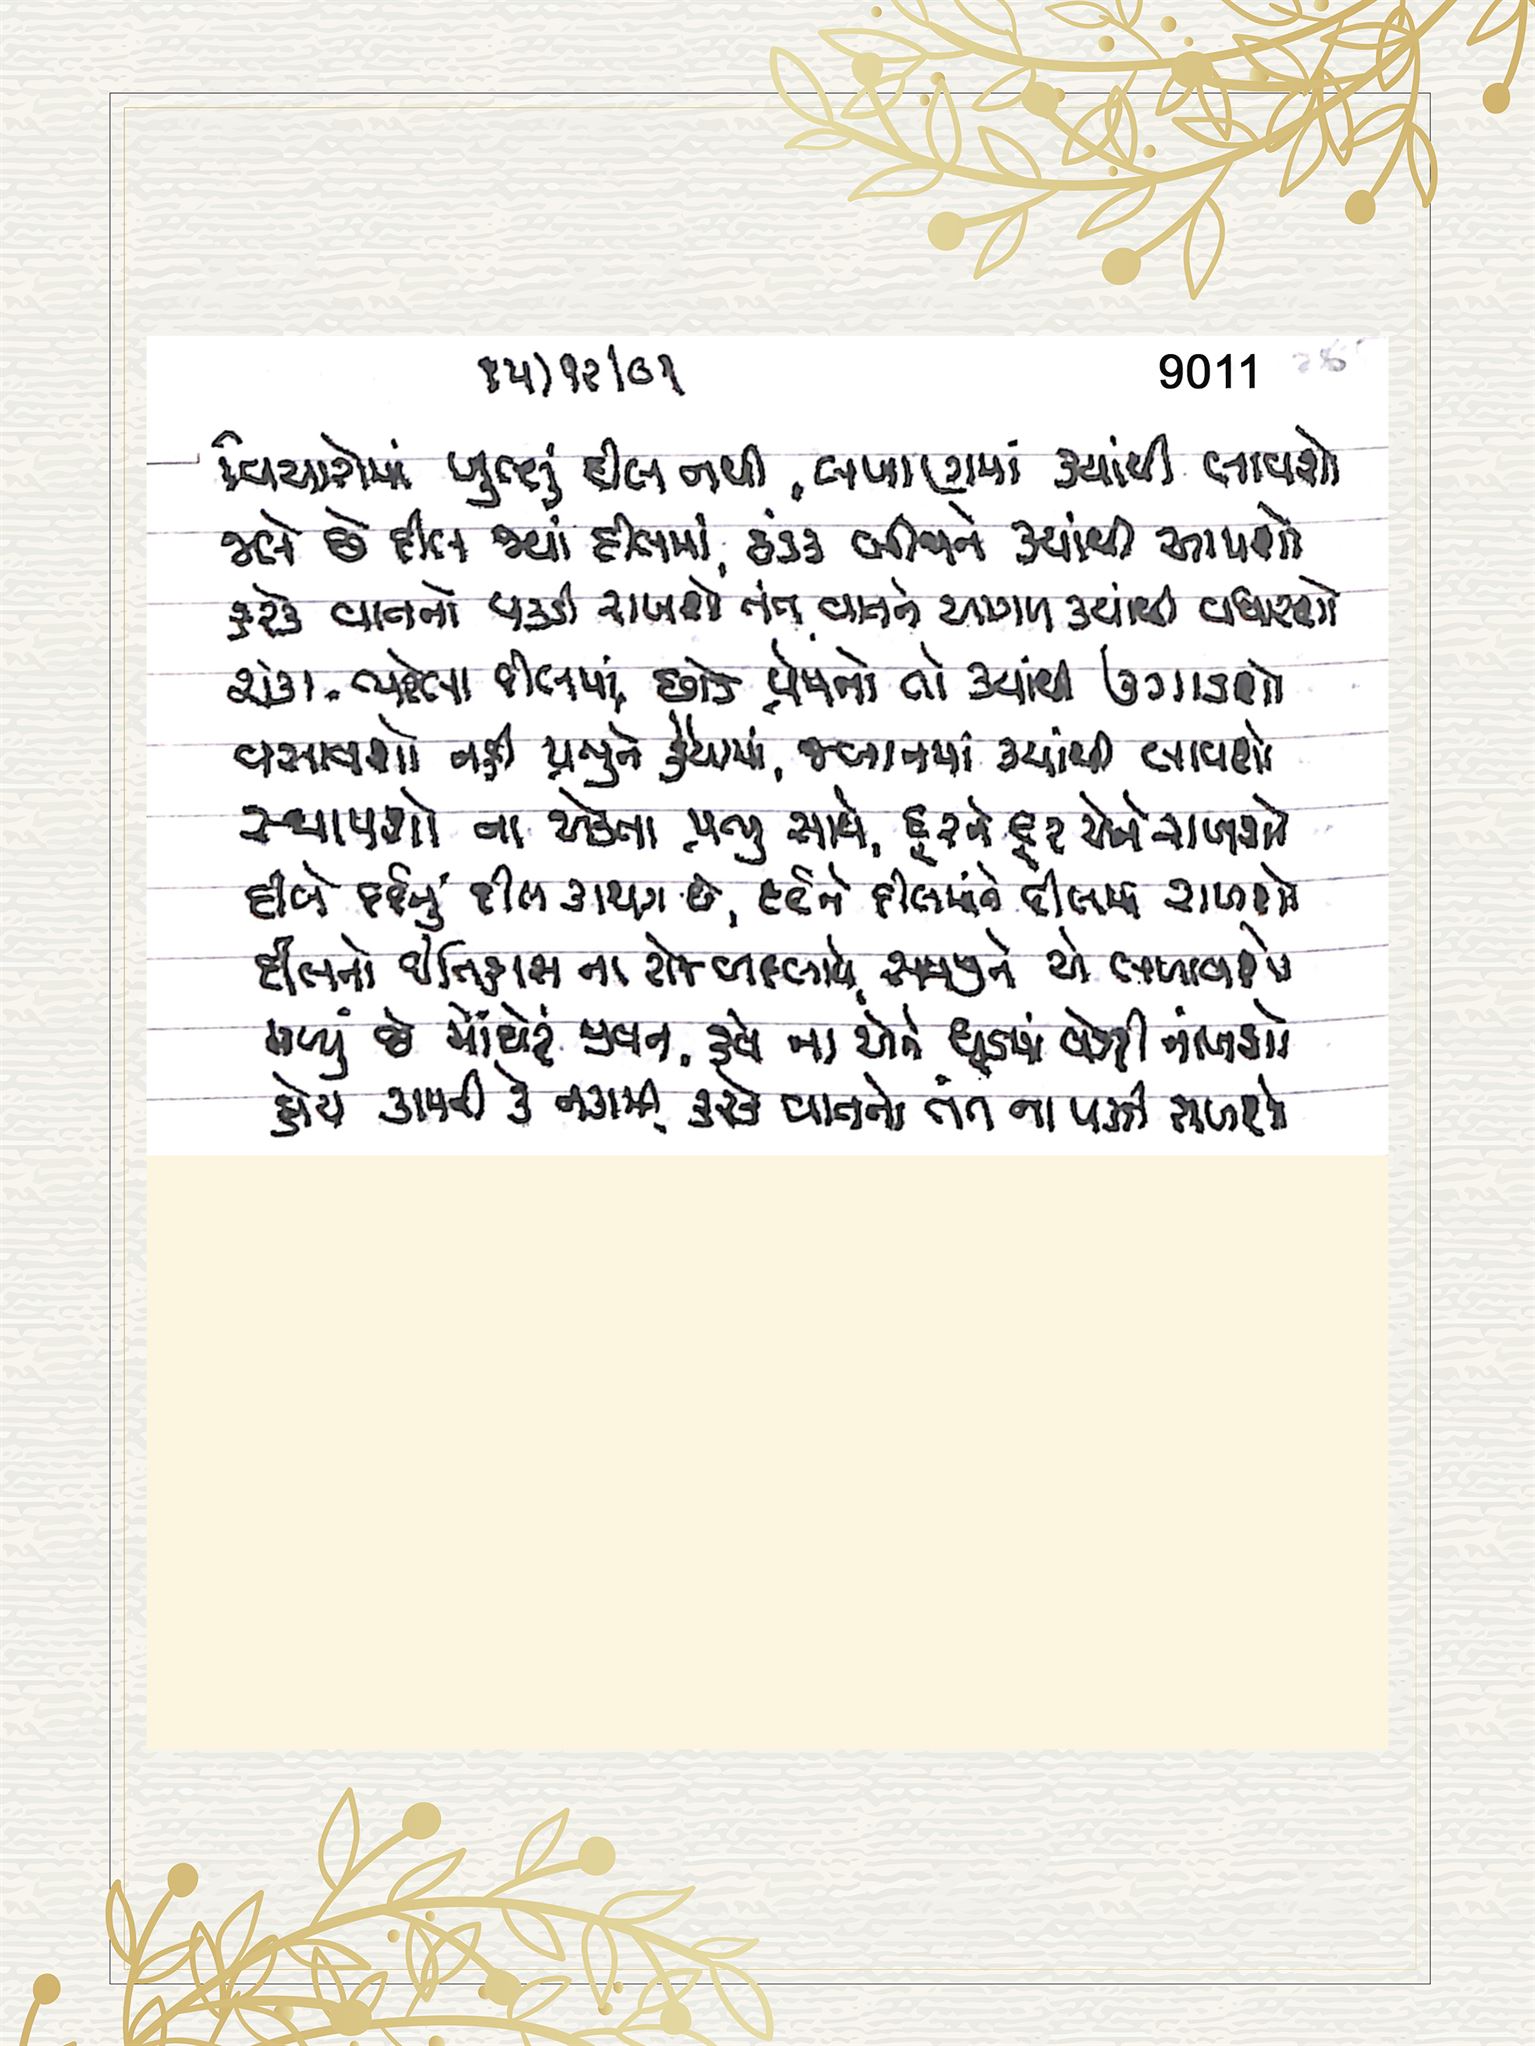 ૧૫)૧૨/૦૧
9011
વિચારોમાં ખુલ્લું દીલ નથી, લખાણમાં ક્યાંથી લાવશો
જલે છે દીલ જ્યાં દીલમાં, ઠંડક બીજાને ક્યાંથી આપશો
હરેક વાતનો પકડી રાખશો તંત, વાતને આગળ ક્યાંથી વધારશો
શંકા ભરેલા દીલમાં, છોડ પ્રેમનો તો ક્યાંથી ઉગાડશો
વસાવશો નહી પ્રભુને હૈયામાં, જબાનમાં ક્યાંથી લાવશો
સ્થાપશો ના એકતા પ્રભુ સાથે, દૂરને દૂર એને રાખશો
દીલે દર્દનું દીલ કાયમ છે, દર્દને દીલમાંને દીલમાં રાખશો
દીલનો ઈતિહાસ ના રોજ બદલાયે, સમજીને એ લખાવશો
મળ્યું છે મોંઘેરું જીવન, હવે ના એને ધૂળમાં વેડફી નાંખશો
હોય કામની કે નકામી, હરેક વાતનો તંત ના પકડી રાખશો